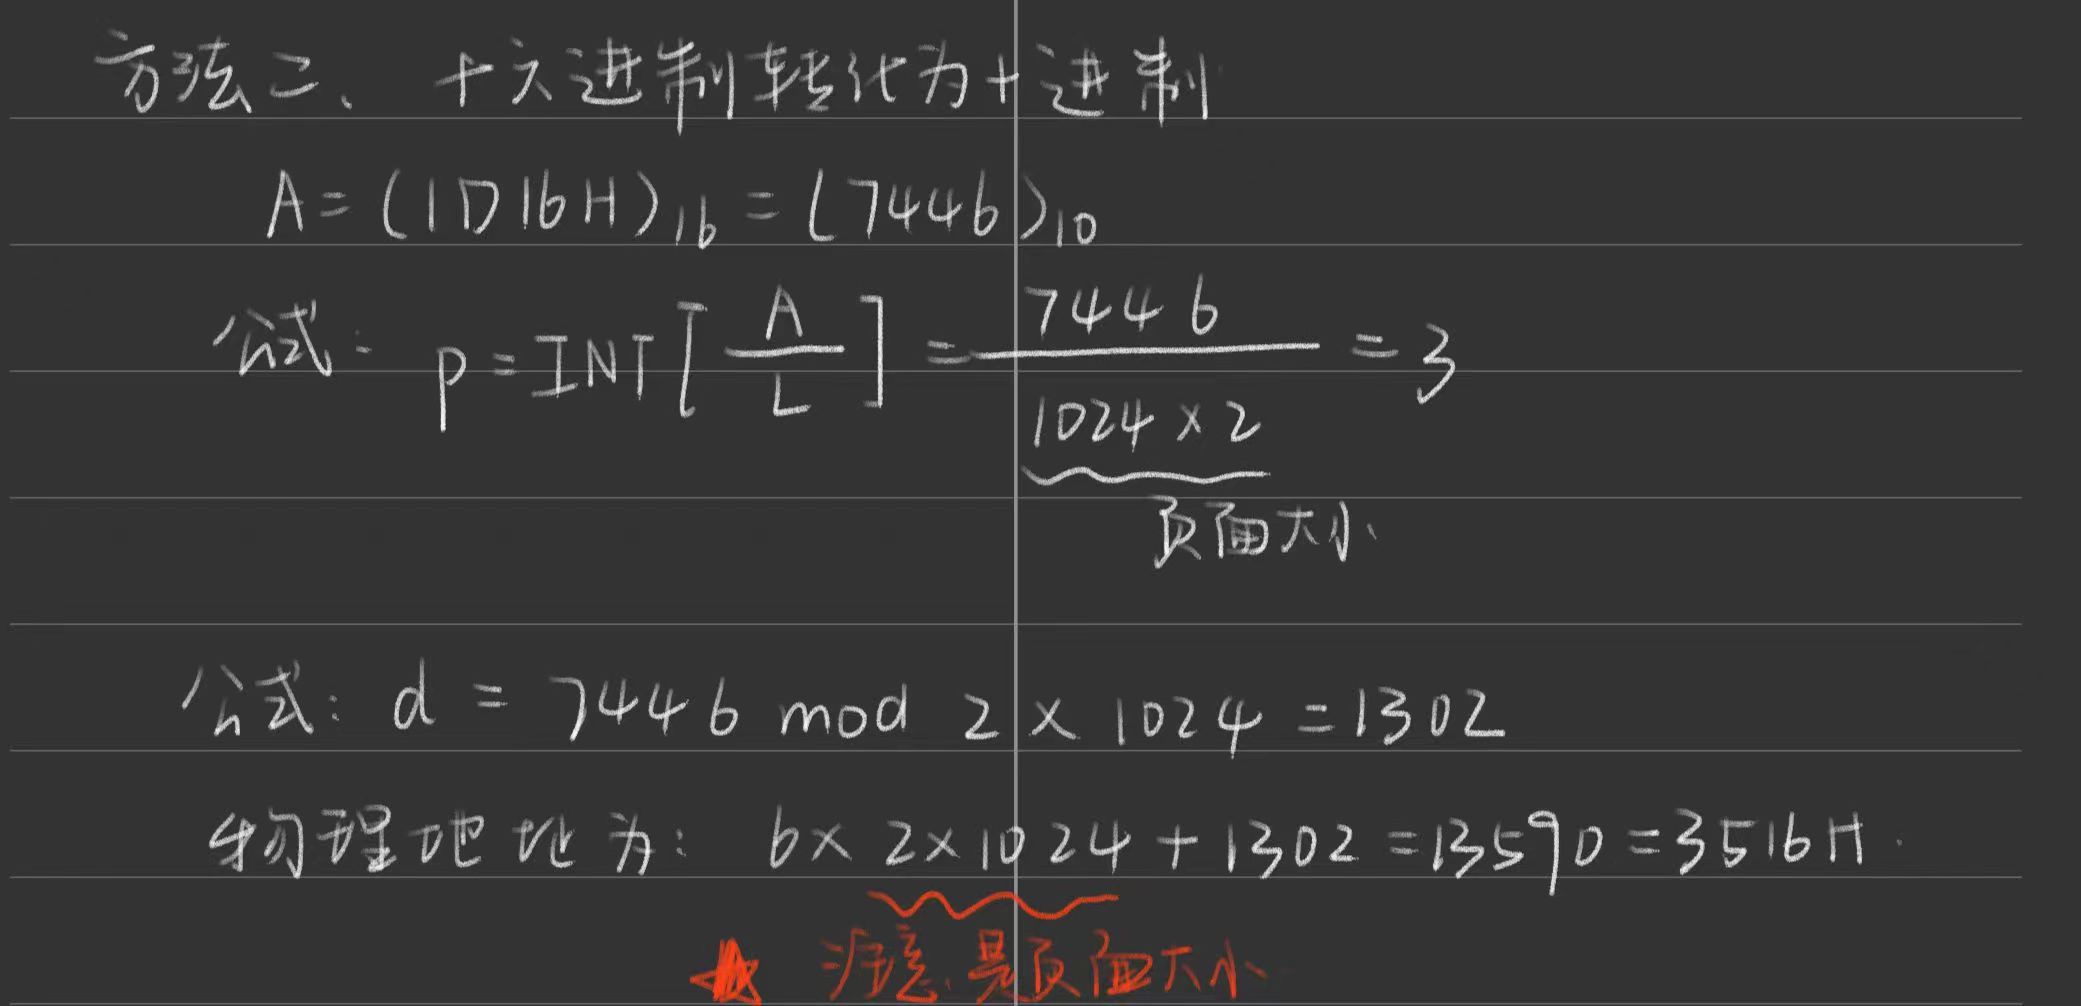 方法二、十六进制转化为十进制
A=(1D16H)₁₆=(7446)₁₀
公式: p=INT[A/L]=7446/(1024×2)=3
页面大小
公式: d = 7446 mod 2×1024=1302
物理地址为: 6×2×1024+1302=13590=3516H.
★ 注意是页面大小